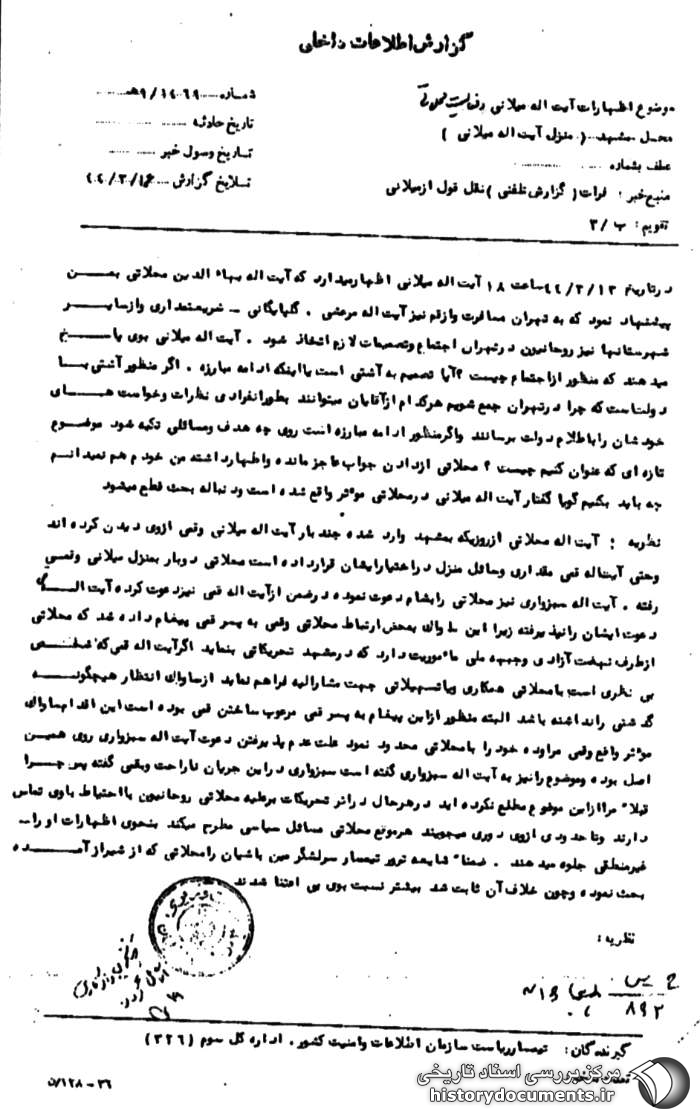 گزارش اطلاعات داخلی
موضوع اظهارات آیت اله میلانی
شماره ۹/۱۴۰۶۹ هـ
محل مشهد ( منزل آیت اله میلانی )
تاریخ حادثه
عطف بشماره
تاریخ وصول خبر
منبع خبر : فرات ( گزارش تلفنی ) نقل قول از میلانی
تاریخ گزارش ۴۲/۳/۱۶
تقویم : ب / ۳
درتاریخ ۴۲/۳/۱۳ ساعت ۱۸ آیت اله میلانی اظهار میدارد که آیت اله بهاء الدین محلاتی بمن
پیشنهاد نمود که به تهران مسافرت و از قم نیز آیت اله مرعشی . گلپایگانی ــ شریعتمداری و از سایر
شهرستانها نیز روحانیون در تهران اجتماع و تصمیمات لازم اتخاذ شود . آیت اله میلانی بوی پاسخ
میدهند که منظور از اجتماع چیست ؟ آیا تصمیم به آشتی است یا اینکه ادامه مبارزه . اگر منظور آشتی با
دولت است که چرا در تهران جمع شویم هرکدام از آقایان میتوانند بطور انفرادی نظرات و خواست های
خودشان را باطلاع دولت برسانند واگر منظور ادامه مبارزه است روی چه هدف و مسائلی تکیه شود موضوع
تازه ای که عنوان کنیم چیست ؟ محلاتی از دادن جواب عاجز مانده و اظهار داشته من خودم هم نمیدانم
چه باید بکنیم گویا گفتار آیت اله میلانی در محلاتی موثر واقع شده است و دنباله بحث قطع میشود
نظریه : آیت اله محلاتی از روزیکه بمشهد وارد شده چند بار آیت اله میلانی وقمی ازوی دیدن کرده اند
وحتی آیت اله قمی مقداری وسائل منزل در اختیار ایشان قرار داده است محلاتی دوبار بمنزل میلانی وقمی
رفته . آیت اله سبزواری نیز محلاتی را بشام دعوت نموده در ضمن از آیت اله قمی نیز دعوت کرده آیت اله
دعوت ایشان را نپذیرفته زیرا این ساواک بمحض ارتباط محلاتی وقمی به پسر قمی پیغام داده شد که محلاتی
از طرف نهضت آزادی وجبهه ملی ماموریت دارد که در مشهد تحریکاتی بنماید اگر آیت اله قمی که شخص
بی نظری است با محلاتی همکاری ویا تسهیلاتی جهت مشارالیه فراهم نماید از ساواک انتظار هیچگونه
گذشتی را نداشته باشد البته منظور از این پیغام به پسر قمی مرعوب ساختن قمی بوده است این اقدام ساواک
موثر واقع وقمی مراوده خود را با محلاتی محدود نمود علت عدم پذیرفتن دعوت آیت اله سبزواری روی همین
اصل بوده وموضوع را نیز به آیت اله سبزواری گفته است سبزواری در این جریان ناراحت وبقمی گفته پس چرا
قبلا مرا از این موضوع مطلع نکرده اید در هر حال در اثر تحریکات برعلیه محلاتی روحانیون با احتیاط باوی تماس
دارند وتا حدودی ازوی دوری میجویند هر موقع محلاتی مسائل سیاسی مطرح میکند بنحوی اظهارات او را ــ
غیر منطقی جلوه میدهند . ضمنا شایعه ترور تیمسار سرلشگر مین باشیان را محلاتی که از شیراز آمده
بحث نموده وچون خلاف آن ثابت شد بیشتر نسبت بوی بی اعتنا شدند
نظریه :
۸۹۲
گیرندگان : تیمسار ریاست سازمان اطلاعات وامنیت کشور . اداره کل سوم ( ۳۲۶ )
۳۶ - ۱۲۸/ن
مرکز بررسی اسناد تاریخی
historydocuments.ir